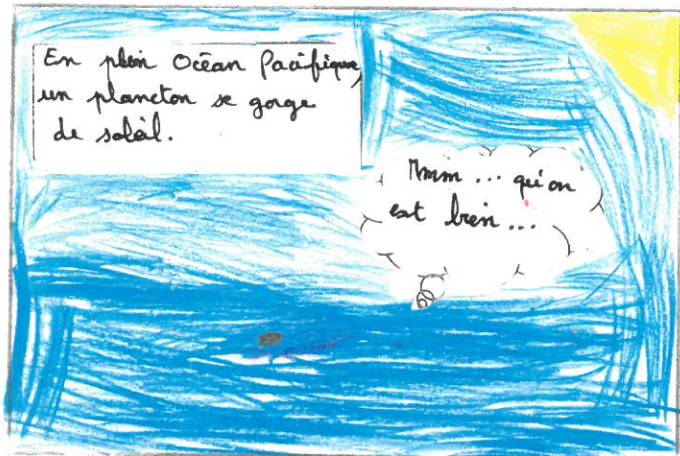 En plein Océan Pacifique,
un plancton se gorge
de soleil.
Mmm ... qu'on
est bien ...